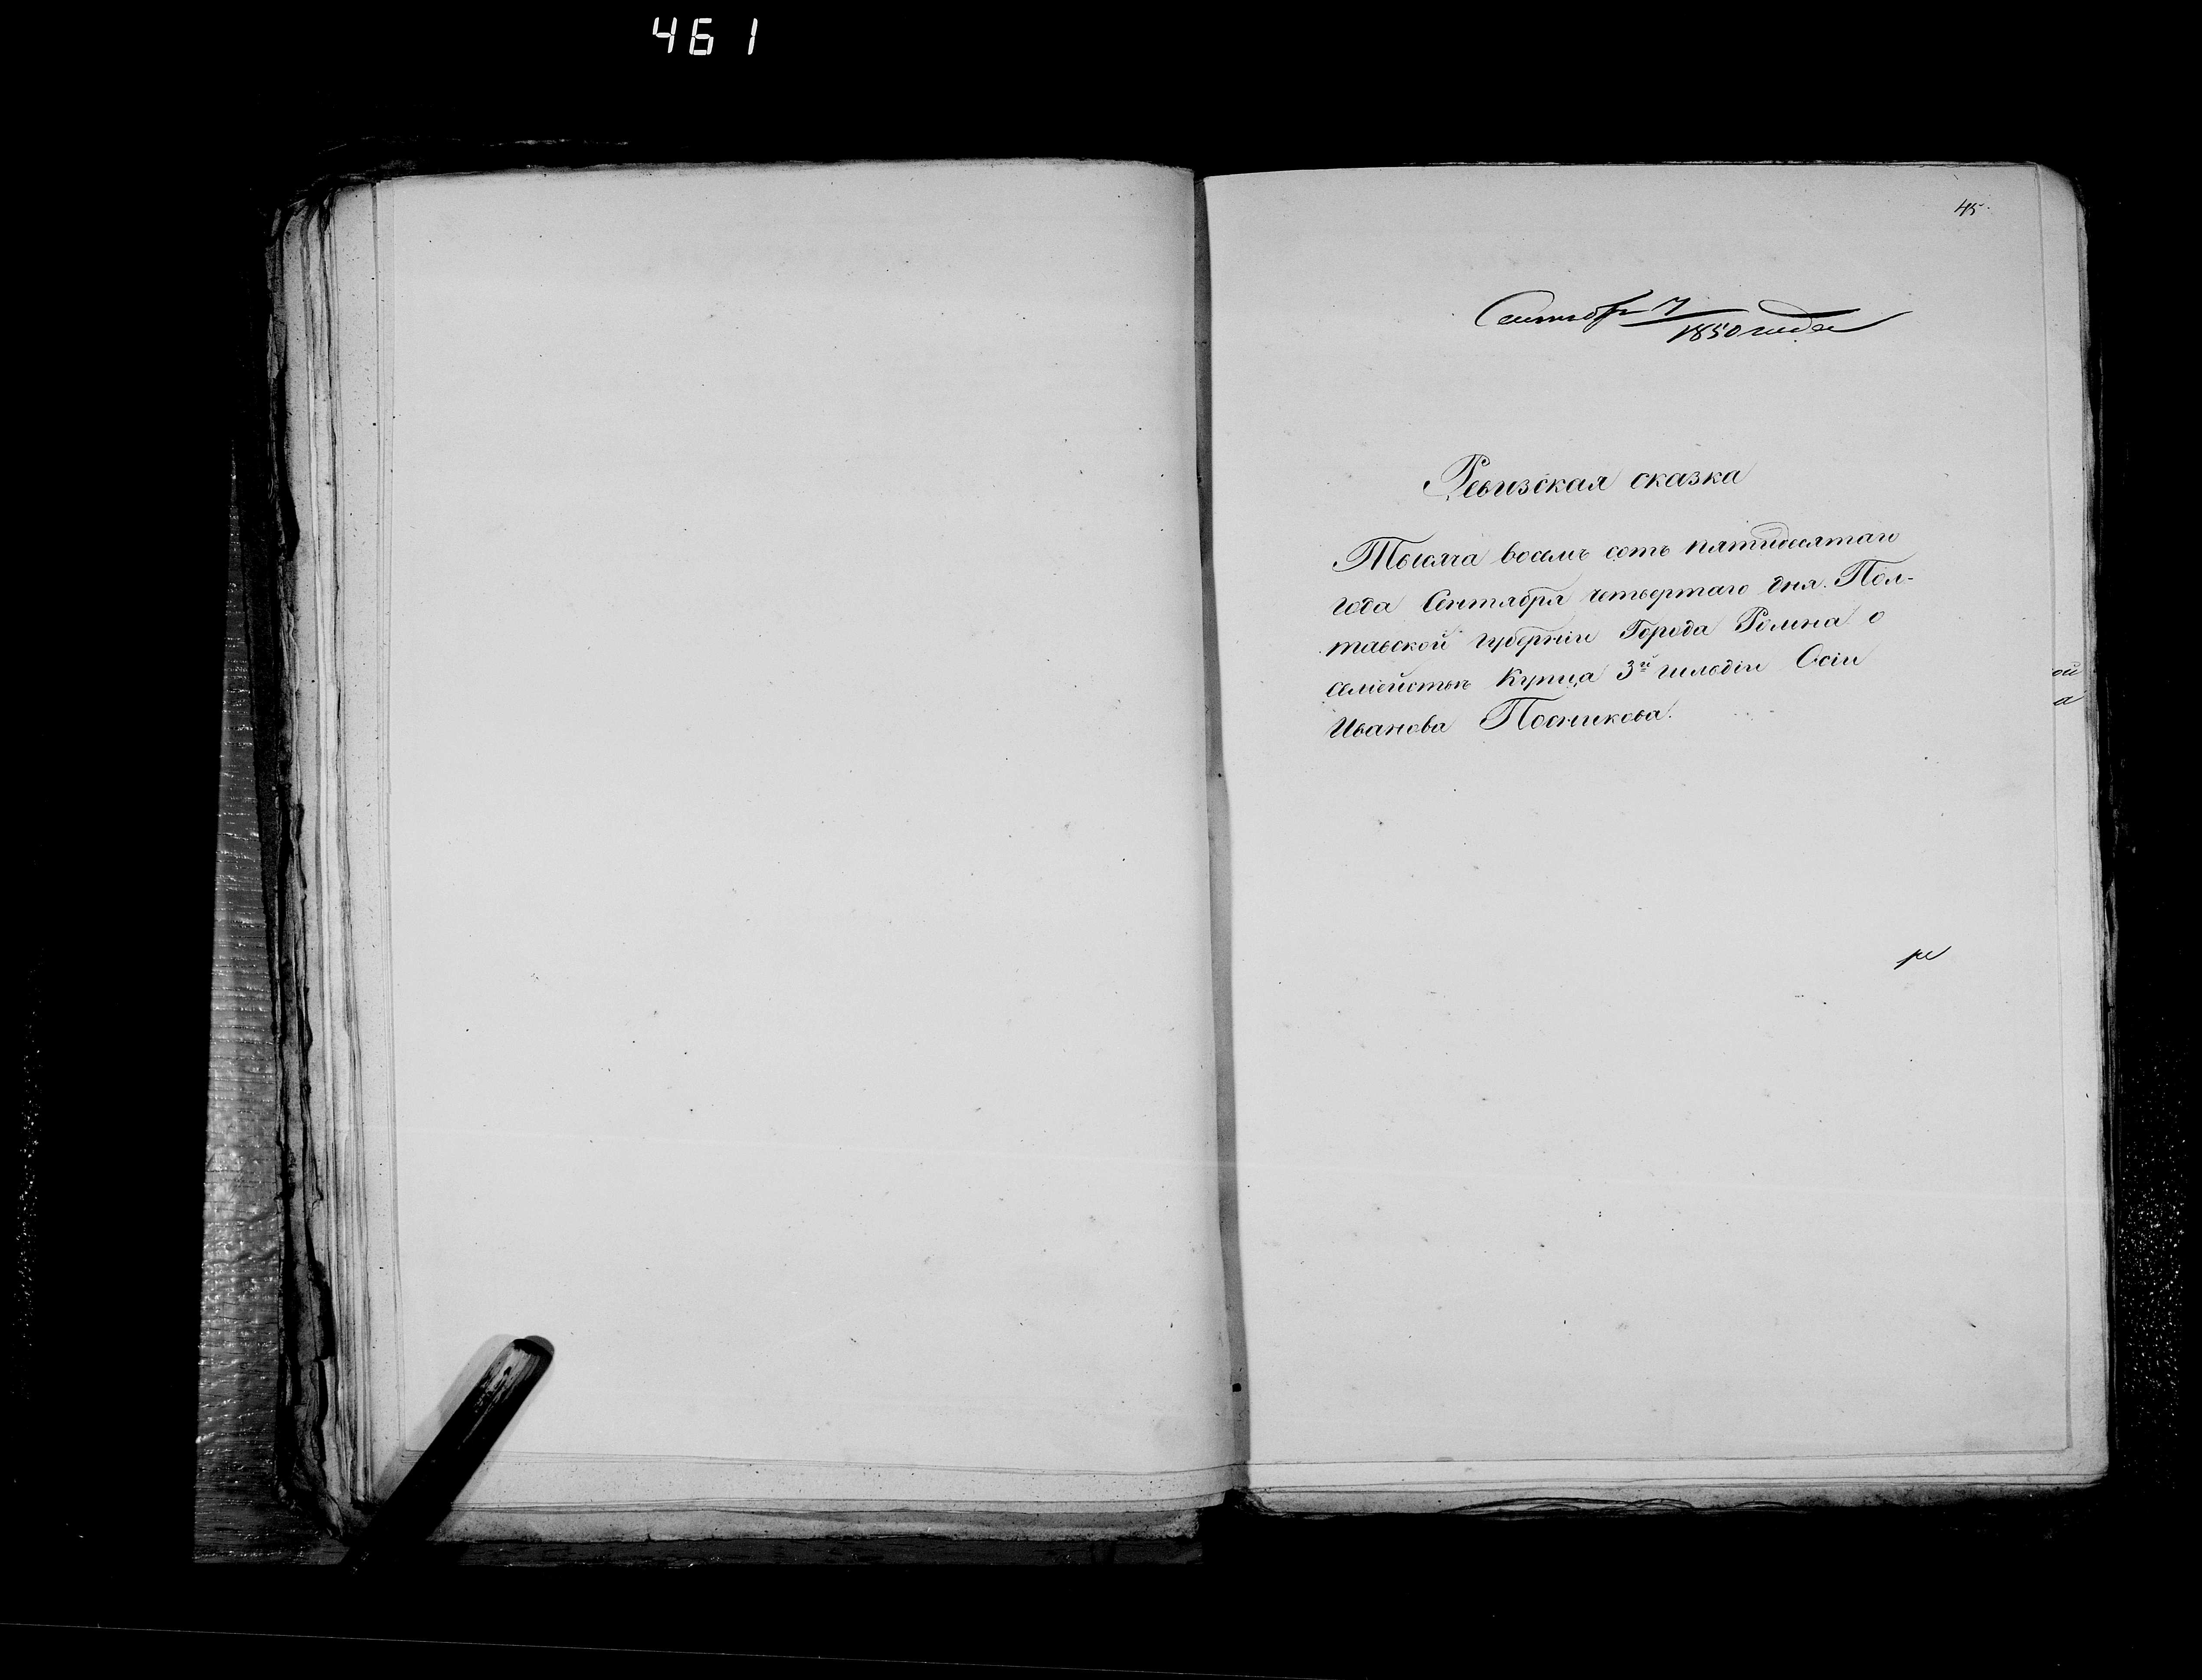 461
45
Сентября 7
1850 года
Ревизская сказка
Тысяча восемь сотъ пятидесятаго
года Сентября четвертаго дня. Пол-
тавской губерніи Города Ромна о
семействѣ Купца 3й гильдіи Осіи
Иванова Посникова.
ой
а